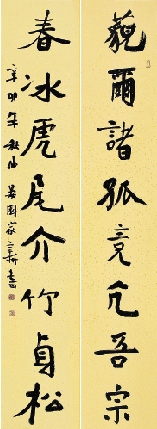 藐爾諸孤竟亢吾宗
春冰虎尾介竹貞松
辛卯年秋月